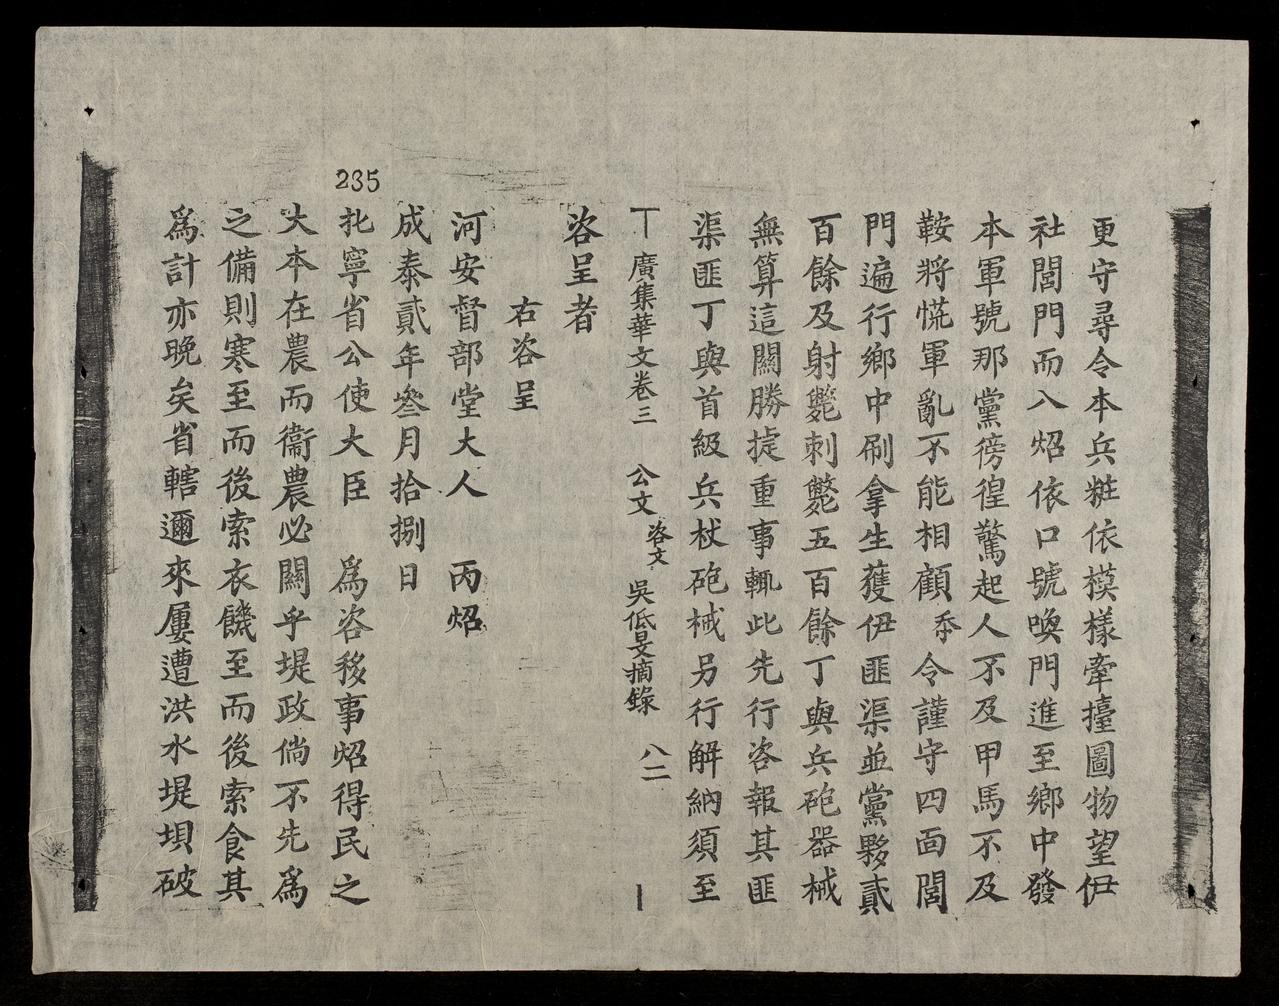 更守尋令本兵粧依模樣牽擡圖物望伊
社閭門而入炤依口號喚門進至鄉中發
本軍號那黨徬徨驚起人不及甲馬不及
鞍將慌軍亂不能相顧 令謹守四面閭
門遍行鄉中刷拿生獲伊匪渠並黨夥貳
百餘及射斃刺斃五百餘丁與兵砲器械
無算這關勝㨗重事輒此先行咨報其匪
渠匪丁與首級兵杖砲械另行解納須至
廣集華文卷三 公文 咨文 吳低旻摘錄 八二
咨呈者
右咨呈
河安督部堂大人 丙炤
成泰貳年叄月拾捌日
235
北寧省公使大臣 爲咨移事炤得民之
大本在農而衞農必關乎堤政倘不先爲
之備則寒至而後索衣饑至而後索食其
爲計亦晚矣省轄邇來屢遭洪水堤埧破